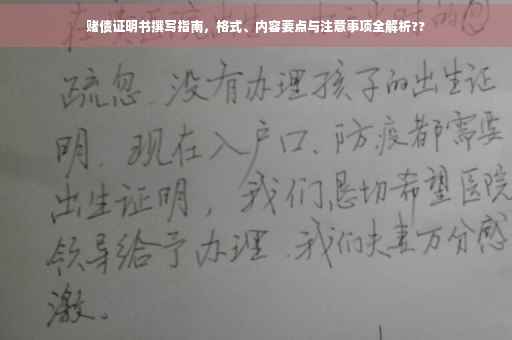 赌债证明书撰写指南，格式、内容要点与注意事项全解析??
疏忽、没有办理孩子的出生证
明、现在入户口、防疫都需要
出生证明，我们恳切希望医院
领导给予办理、我们夫妻万分感
激。